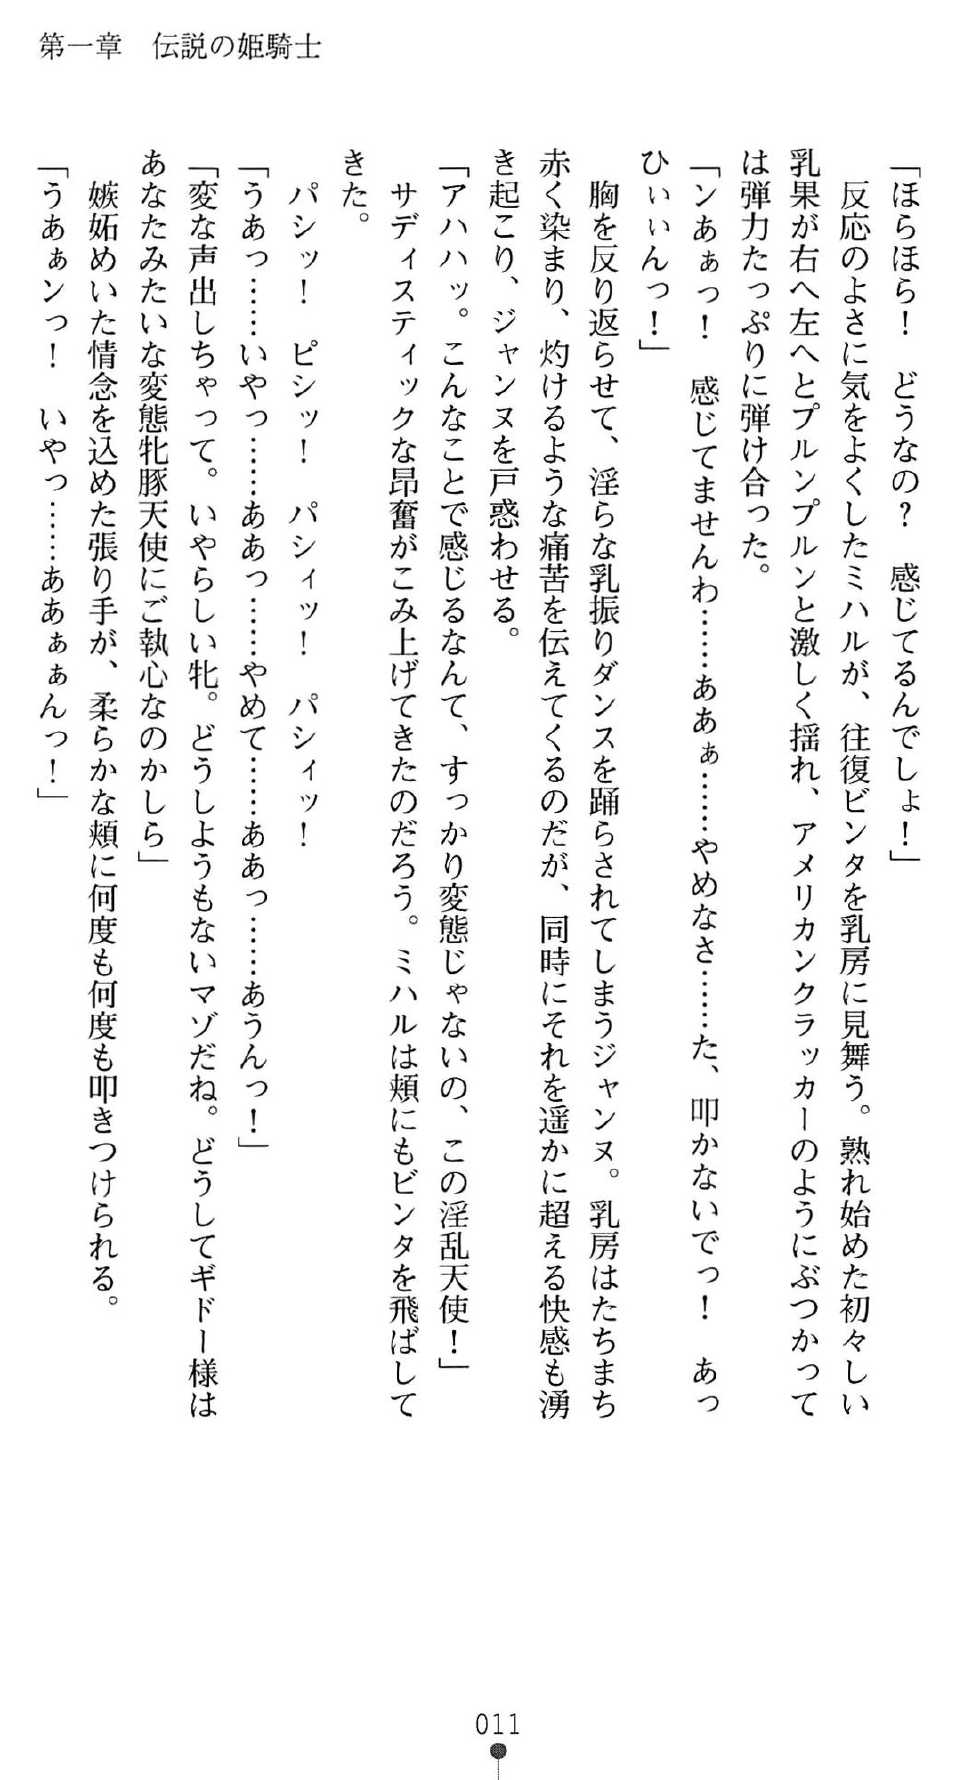 第一章　伝説の姫騎士
「ほらほら！　どうなの？　感じてるんでしょ！」
　反応のよさに気をよくしたミハルが、往復ビンタを乳房に見舞う。熟れ始めた初々しい
乳果が右へ左へとプルンプルンと激しく揺れ、アメリカンクラッカーのようにぶつかって
は弾力たっぷりに弾け合った。
「ンあぁっ！　感じてませんわ……ああぁ……やめなさ……た、叩かないでっ！　あっ
ひぃぃんっ！」
　胸を反り返らせて、淫らな乳振りダンスを踊らされてしまうジャンヌ。乳房はたちまち
赤く染まり、灼けるような痛苦を伝えてくるのだが、同時にそれを遥かに超える快感も湧
き起こり、ジャンヌを戸惑わせる。
「アハハッ。こんなことで感じるなんて、すっかり変態じゃないの、この淫乱天使！」
　サディスティックな昂奮がこみ上げてきたのだろう。ミハルは頬にもビンタを飛ばして
きた。
　パシッ！　ピシッ！　パシィッ！　パシィッ！
「うあっ……いやっ……ああっ……やめて……ああっ……あうんっ！」
「変な声出しちゃって。いやらしい牝。どうしようもないマゾだね。どうしてギドー様は
あなたみたいな変態牝豚天使にご執心なのかしら」
　嫉妬めいた情念を込めた張り手が、柔らかな頬に何度も何度も叩きつけられる。
「うあぁンっ！　いやっ……ああぁぁんっ！」
011